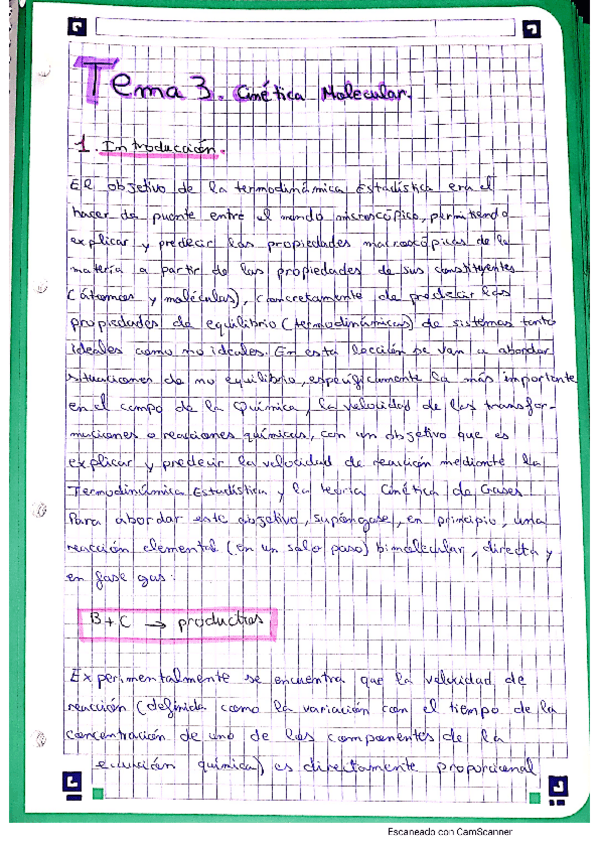 Tema 3. Cinética Molecular.
1. Introducción.
El objetivo de la termodinámica Estadística era el
hacer de puente entre el mundo microscópico, permitiendo
explicar y predecir las propiedades macroscópicas de la
materia a partir de las propiedades de sus constituyentes
(átomos y moléculas), concretamente de predecir las
propiedades de equilibrio (termodinámicas) de sistemas tanto
ideales como no ideales. En esta lección se van a abordar
situaciones de no equilibrio, específicamente la más importante
en el campo de la Química, la velocidad de las transfor-
maciones o reacciones químicas, con un objetivo que es
explicar y predecir la velocidad de reacción mediante la
Termodinámica Estadística y la teoría Cinética de Gases.
Para abordar este objetivo, supóngase, en principio, una
reacción elemental (en un solo paso) bimolecular, directa y
en fase gas:
B + C → productos
Experimentalmente se encuentra que la velocidad de
reacción (definida como la variación con el tiempo de la
concentración de uno de los componentes de la
ecuación química) es directamente proporcional
Escaneado con CamScanner